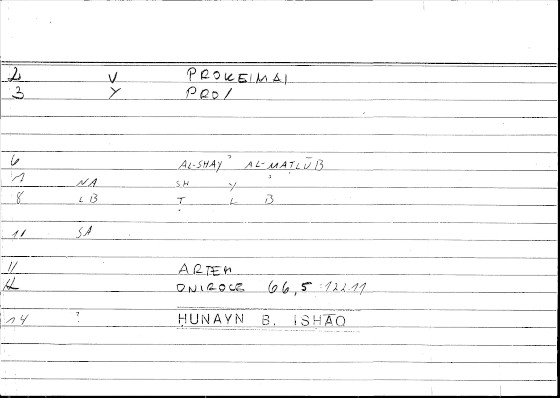 2 V PROKEIMAI
3 Y PRO/
6 AL-SHAYʾ AL-MAṬLŪB
7 NA SH Y ʾ
8 LB Ṭ L B
11 SA
11 ARTEM
12 ONIROCR 66,5 12211
14 ? HUNAYN B. ISHAQ